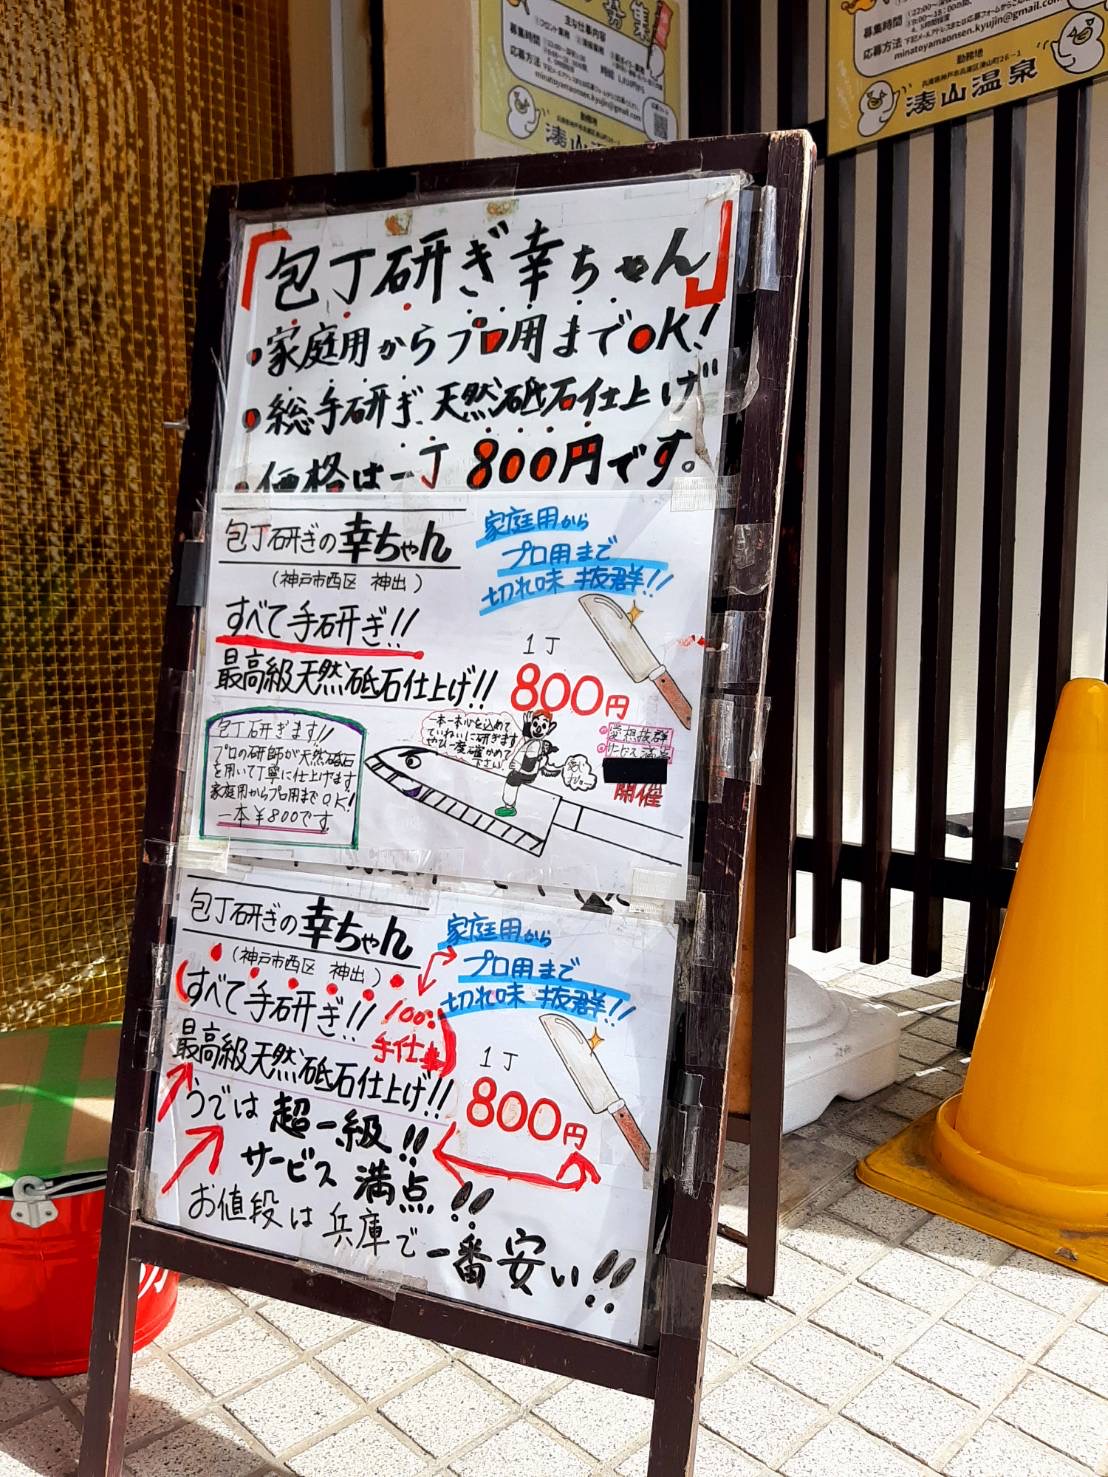 募集
主な仕事内容
minatoyamaonsen.kyujin@gmail.com
勤務地
湊山温泉
募集時間
応募方法
minatoyamaonsen.kyujin@gmail.com
勤務地
湊山温泉
「包丁研ぎ幸ちゃん」
・家庭用からプロ用までOK!
・総手研ぎ、天然砥石仕上げ
・価格は一丁800円です。
包丁研ぎの幸ちゃん
(神戸市西区 神出)
家庭用から
プロ用まで
切れ味 抜群!!
すべて手研ぎ!!
最高級天然砥石仕上げ!!
1丁
800円
包丁研ぎます!!
プロの研師が天然砥石
を用いて丁寧に仕上げます
家庭用からプロ用までOK!
一本¥800です
一本一本心を込めて
ていねいに研ぎます
ぜひ一度確かめて
下さい!
愛想抜群
開催
包丁研ぎの幸ちゃん
(神戸市西区 神出)
家庭用から
プロ用まで
切れ味 抜群!!
すべて手研ぎ!!
100%
手仕事
最高級天然砥石仕上げ!!
1丁
800円
うでは超一級!!
サービス満点!!
お値段は兵庫で一番安い!!